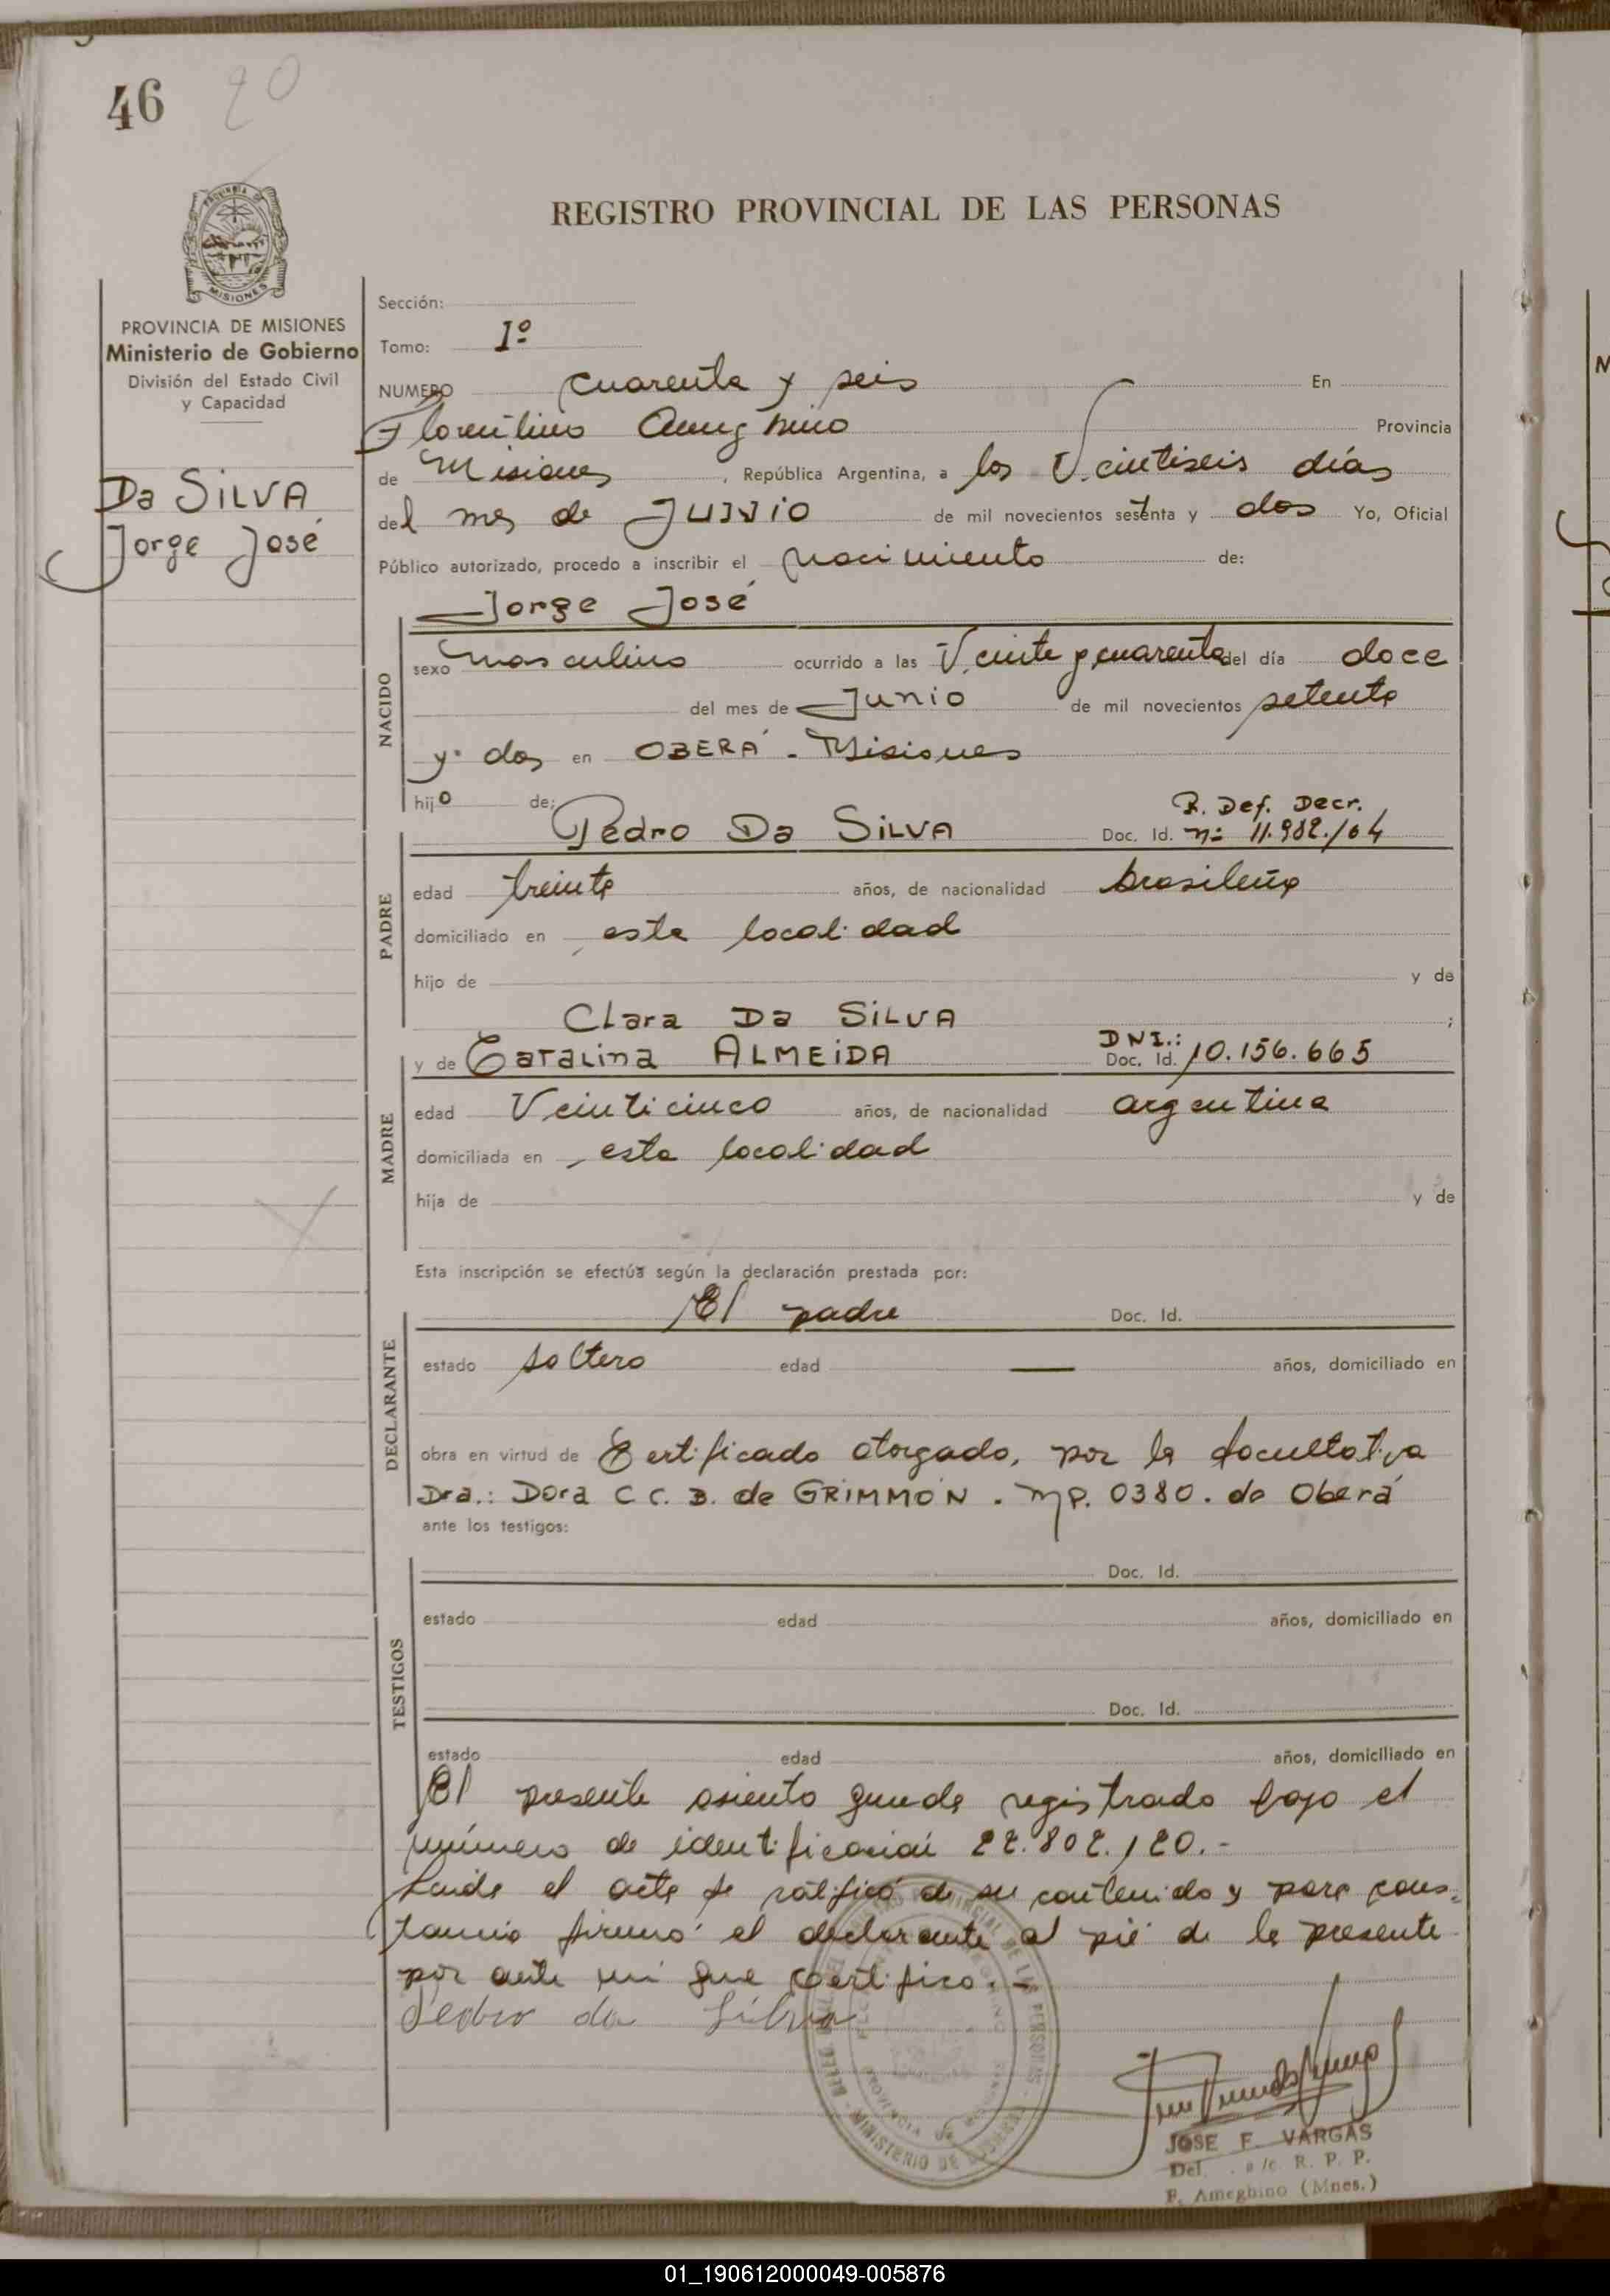 46 20
REGISTRO PROVINCIAL DE LAS PERSONAS
PROVINCIA DE MISIONES
Ministerio de Gobierno
División del Estado Civil
y Capacidad
Da SILVA
Jorge José
Sección:
Tomo: 1º
NUMERO cuarenta y seis En
Florentino Ameghino Provincia
de Misiones, República Argentina, a los Veintiseis días
del mes de JUNIO de mil novecientos setenta y dos Yo, Oficial
Público autorizado, procedo a inscribir el nacimiento de:
Jorge José
NACIDO
sexo masculino ocurrido a las Veinte y cuarenta del día doce
del mes de Junio de mil novecientos setenta
y dos en OBERÁ - Misiones
hijo de:
R. Def. Decr.
Pedro Da SILVA Doc. Id. nº 11.982./64
PADRE
edad treinta años, de nacionalidad brasileña
domiciliado en esta localidad
hijo de y de
Clara Da SILVA ;
DNI.:
y de Catalina ALMEIDA Doc. Id. 10.156.665
MADRE
edad Veinticinco años, de nacionalidad argentina
domiciliada en esta localidad
hija de y de
Esta inscripción se efectúa según la declaración prestada por:
El padre Doc. Id.
DECLARANTE
estado soltero edad — años, domiciliado en
obra en virtud de Certificado otorgado, por la facultativa
Dra.: Dora C C. B. de GRIMMON. MP. 0380. de Oberá
ante los testigos:
Doc. Id.
TESTIGOS
estado edad años, domiciliado en
Doc. Id.
estado edad años, domiciliado en
El presente asiento queda registrado bajo el
número de identificación 22.802.120.-
Leida el acta se ratificó de su contenido y para cons-
tancia firmó el declarante al pié de la presente
por ante mi que certifico.-
Pedro da Silva
MINISTERIO DE GOBIERNO
PROVINCIA DE MISIONES
JOSE F. VARGAS
Del. a/c R. P. P.
F. Ameghino (Mnes.)
01_190612000049-005876